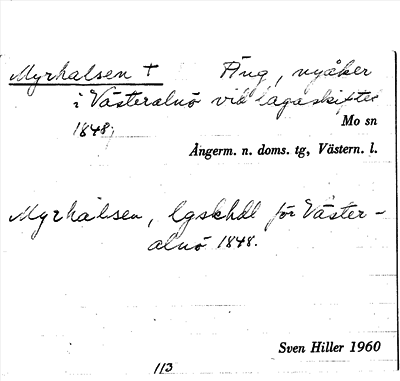 Myrhalsen † Äng, nyåker
i Västeralnö vid lagaskiftet
1848,
Mo sn
Ångerm. n. doms. tg, Västern. l.
Myrhalsen, lgskhdl för Väster-
alnö 1848.
Sven Hiller 1960
113